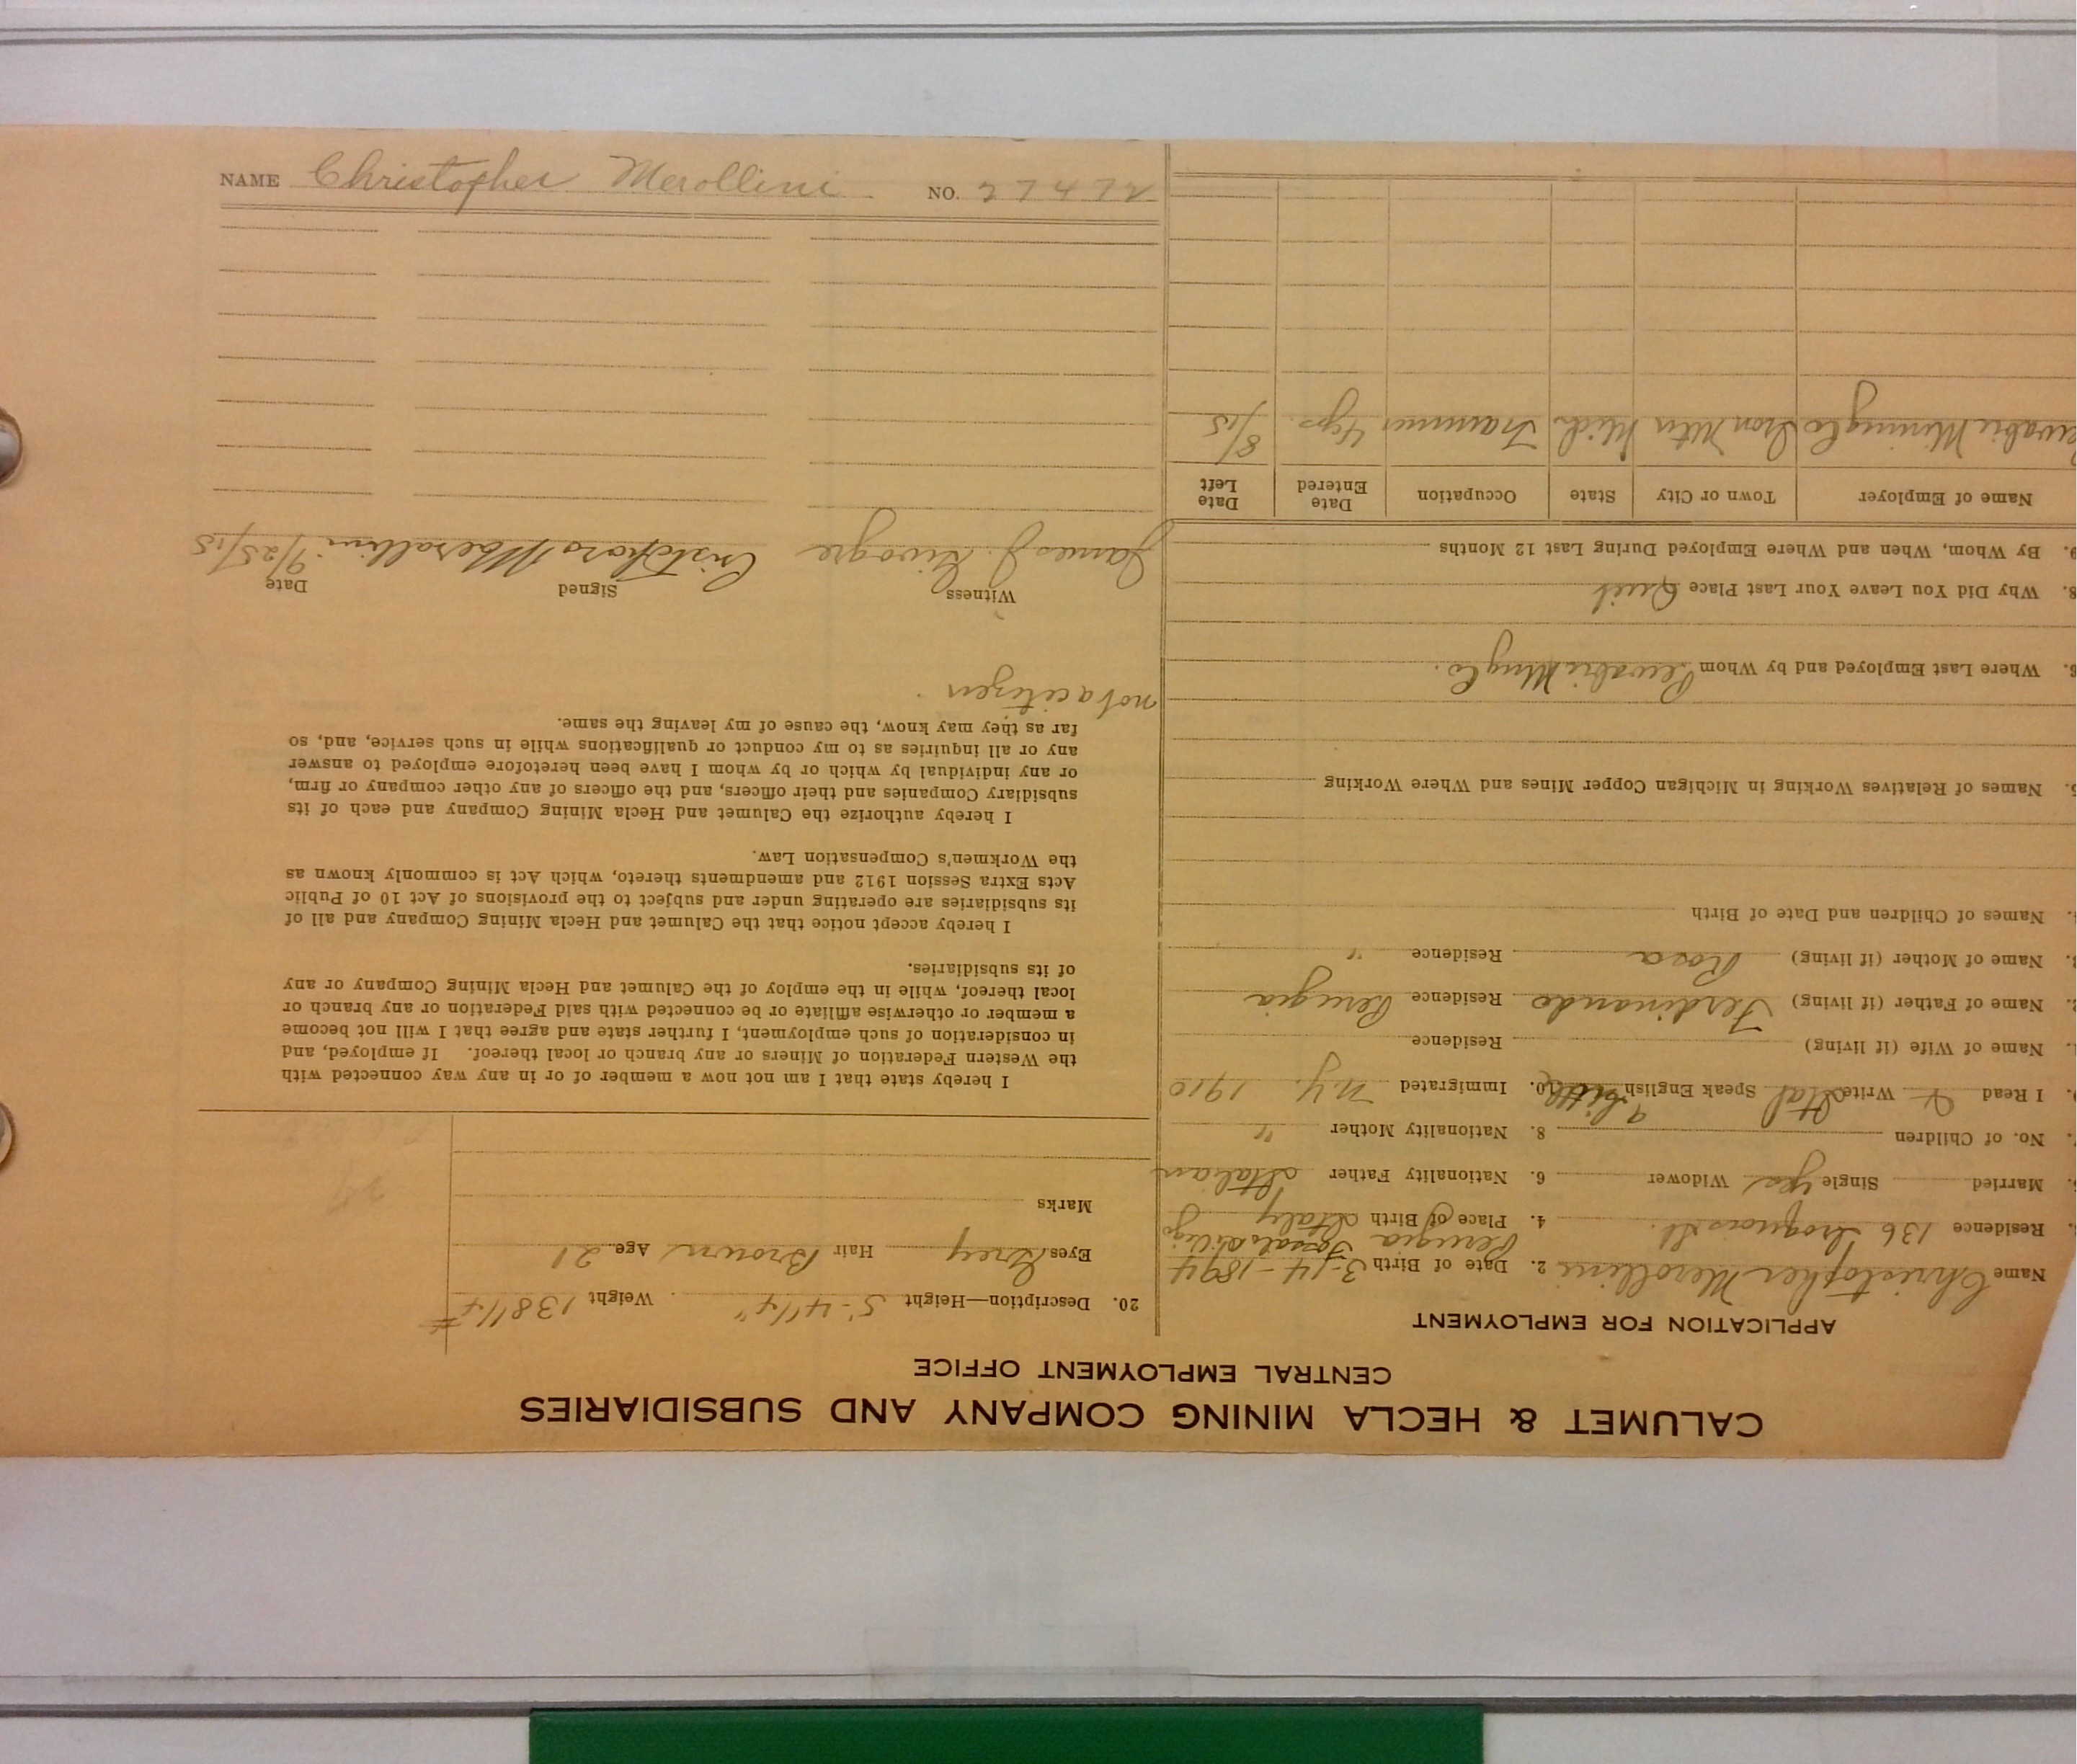 CALUMET & HECLA MINING COMPANY AND SUBSIDIARIES
CENTRAL EMPLOYMENT OFFICE
APPLICATION FOR EMPLOYMENT
Name Christopher Merollini 2. Date of Birth 3-14-1894
Perugia
Residence 136 Iroquois St. 4. Place of Birth Italy
Married Single yes Widower 6. Nationality Father Italian
No. of Children 8. Nationality Mother "
I Read & Write Ital Speak English a little 10. Immigrated N.Y. 1910
Name of Wife (if living) Residence
Name of Father (if living) Ferdinando Residence Perugia
Name of Mother (if living) Rosa Residence "
Names of Children and Date of Birth
5. Names of Relatives Working in Michigan Copper Mines and Where Working
6. Where Last Employed and by Whom Pewabic Mng Co.
8. Why Did You Leave Your Last Place Quit
9. By Whom, When and Where Employed During Last 12 Months
Name of Employer Town or City State Occupation Date Entered Date Left
Pewabic Mining Co Iron Mtn Mich Trammer 4 yrs. 8/15
20. Description—Height 5'-4 1/4" Weight 138 1/4 #
Eyes Grey Hair Brown Age 21
Marks
I hereby state that I am not now a member of or in any way connected with
the Western Federation of Miners or any branch or local thereof. If employed, and
in consideration of such employment, I further state and agree that I will not become
a member or otherwise affiliate or be connected with said Federation or any branch or
local thereof, while in the employ of the Calumet and Hecla Mining Company or any
of its subsidiaries.
I hereby accept notice that the Calumet and Hecla Mining Company and all of
its subsidiaries are operating under and subject to the provisions of Act 10 of Public
Acts Extra Session 1912 and amendments thereto, which Act is commonly known as
the Workmen's Compensation Law.
I hereby authorize the Calumet and Hecla Mining Company and each of its
subsidiary Companies and their officers, and the officers of any other company or firm,
or any individual by which or by whom I have been heretofore employed to answer
any or all inquiries as to my conduct or qualifications while in such service, and, so
far as they may know, the cause of my leaving the same.
not a citizen.
Witness Signed Date
James J. 9/25/15
NAME Christopher Merollini NO. 27472